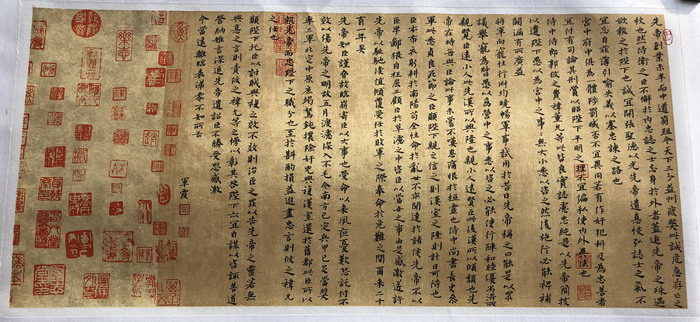 先帝創業未半而中道崩殂今天下三分益州疲弊此誠危急存亡之
秋也然侍衛之臣不懈於內忠志之士忘身於外者蓋追先帝之殊遇
欲報之於陛下也誠宜開張聖聽以光先帝遺德恢弘志士之氣不
宜妄自菲薄引喻失義以塞忠諫之路也
宮中府中俱為一體陟罰臧否不宜異同若有作奸犯科及為忠善者
宜付有司論其刑賞以昭陛下平明之理不宜偏私使內外異法也
侍中侍郎郭攸之費禕董允等此皆良實志慮忠純是以先帝簡拔
以遺陛下愚以為宮中之事無大小悉以咨之然後施行必能裨補
闕漏有所廣益
將軍向寵性行淑均曉暢軍事試用於昔日先帝稱之曰能是以眾
議舉寵為督愚以為營中之事悉以咨之必能使行陣和睦優劣得所
親賢臣遠小人此先漢所以興隆也親小人遠賢臣此後漢所以傾頹也先
帝在時每與臣論此事未嘗不歎息痛恨於桓靈也侍中尚書長史參
軍此悉貞良死節之臣願陛下親之信之則漢室之隆可計日而待也
臣本布衣躬耕於南陽苟全性命於亂世不求聞達於諸侯先帝不以
臣卑鄙猥自枉屈三顧臣於草廬之中咨臣以當世之事由是感激遂許
先帝以馳驅後值傾覆受任於敗軍之際奉命於危難之間爾來二十
有一年矣
先帝知臣謹慎故臨崩寄臣以大事也受命以來夙夜憂歎恐託付不
效以傷先帝之明故五月渡瀘深入不毛今南方已定兵甲已足當獎
率三軍北定中原庶竭駑鈍攘除奸凶興復漢室還于舊都此臣所以
報先帝而忠陛下之職分也至於斟酌損益進盡忠言則攸之禕允
之任也
願陛下託臣以討賊興復之效不效則治臣之罪以告先帝之靈若無
興德之言則責攸之禕允等之慢以彰其咎陛下亦宜自謀以咨諏善道
察納雅言深追先帝遺詔臣不勝受恩感激
今當遠離臨表涕零不知所言
軍霞